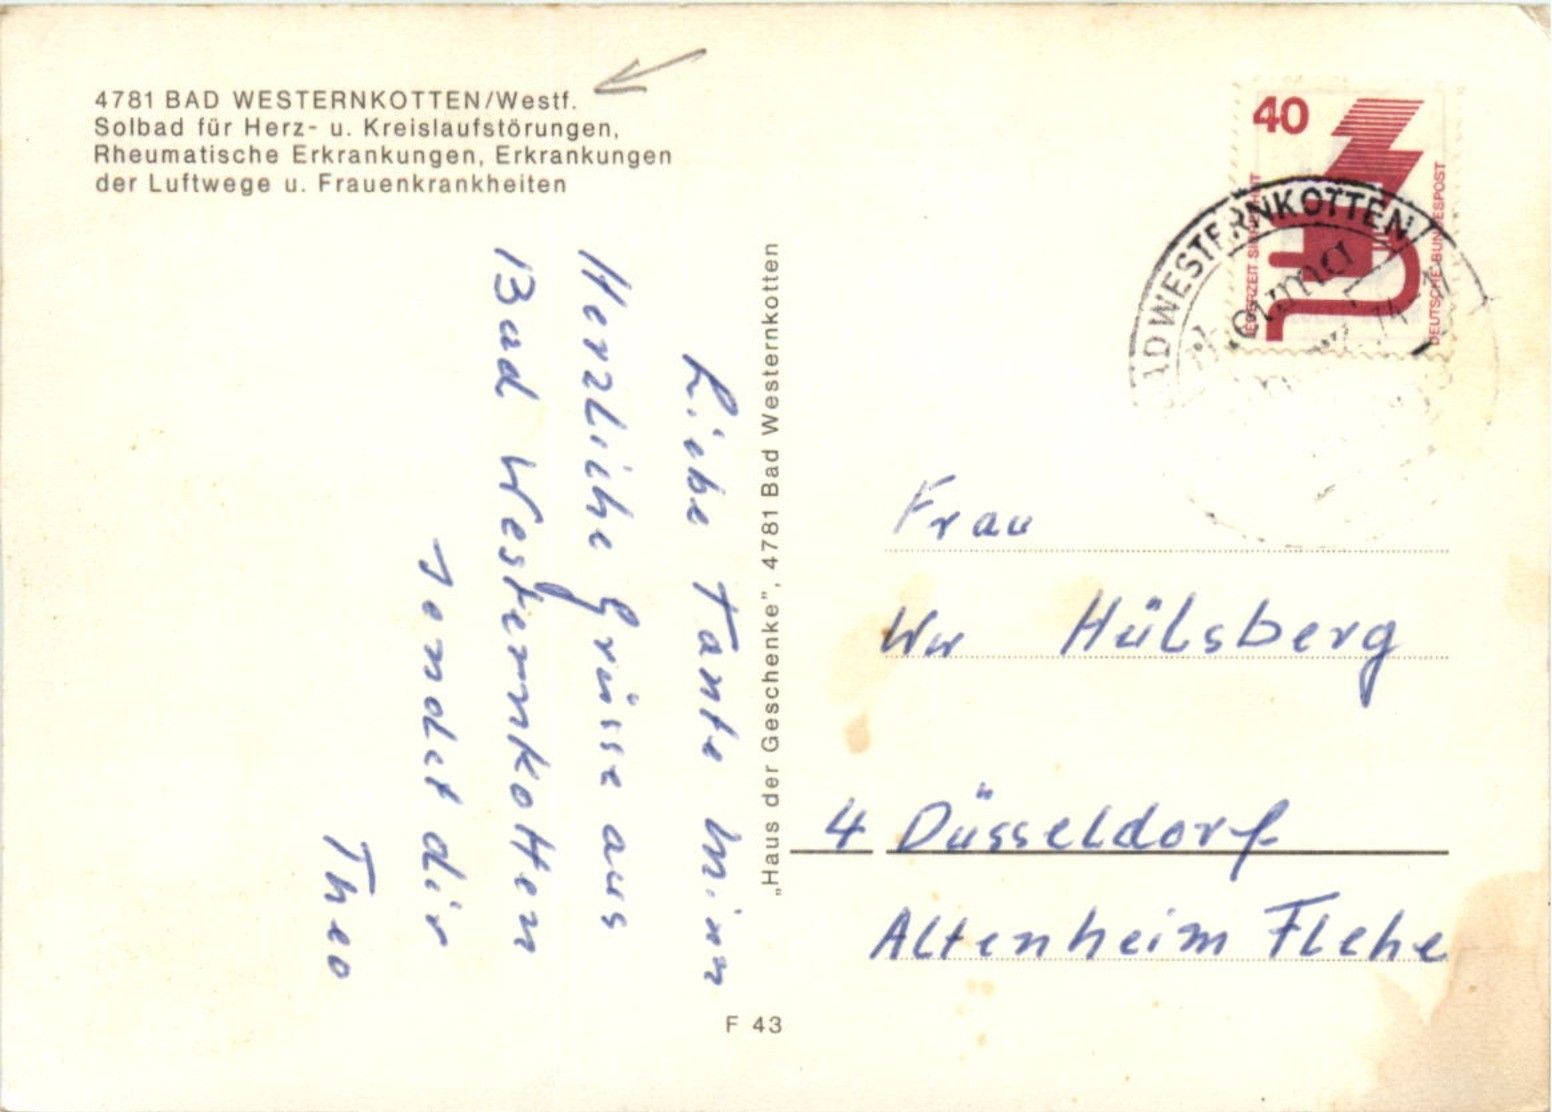 4781 BAD WESTERNKOTTEN/Westf.
Solbad für Herz- u. Kreislaufstörungen,
Rheumatische Erkrankungen, Erkrankungen
der Luftwege u. Frauenkrankheiten
Liebe Tante
Herzliche Grüsse aus
Bad Westernkotten
sendet dir
Theo
„Haus der Geschenke", 4781 Bad Westernkotten
F 43
40
DEUTSCHE BUNDESPOST
BAD WESTERNKOTTEN
Frau
Ww Hülsberg
4 Düsseldorf
Altenheim Flehe